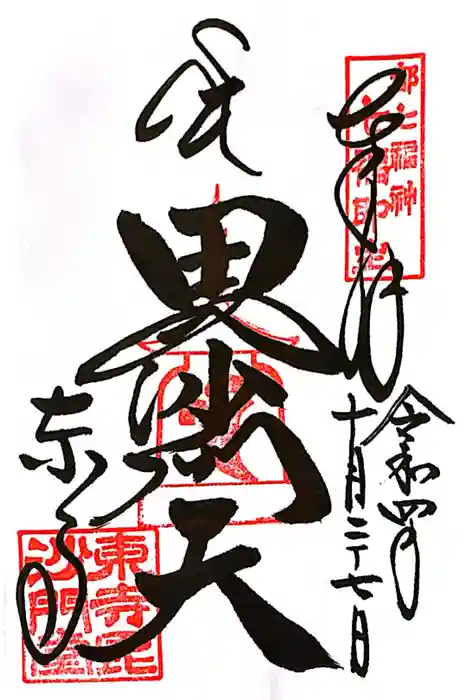 奉拝
令和四年
十月二十七日
毘沙門天
東寺
都七福神
東寺毘
沙門堂